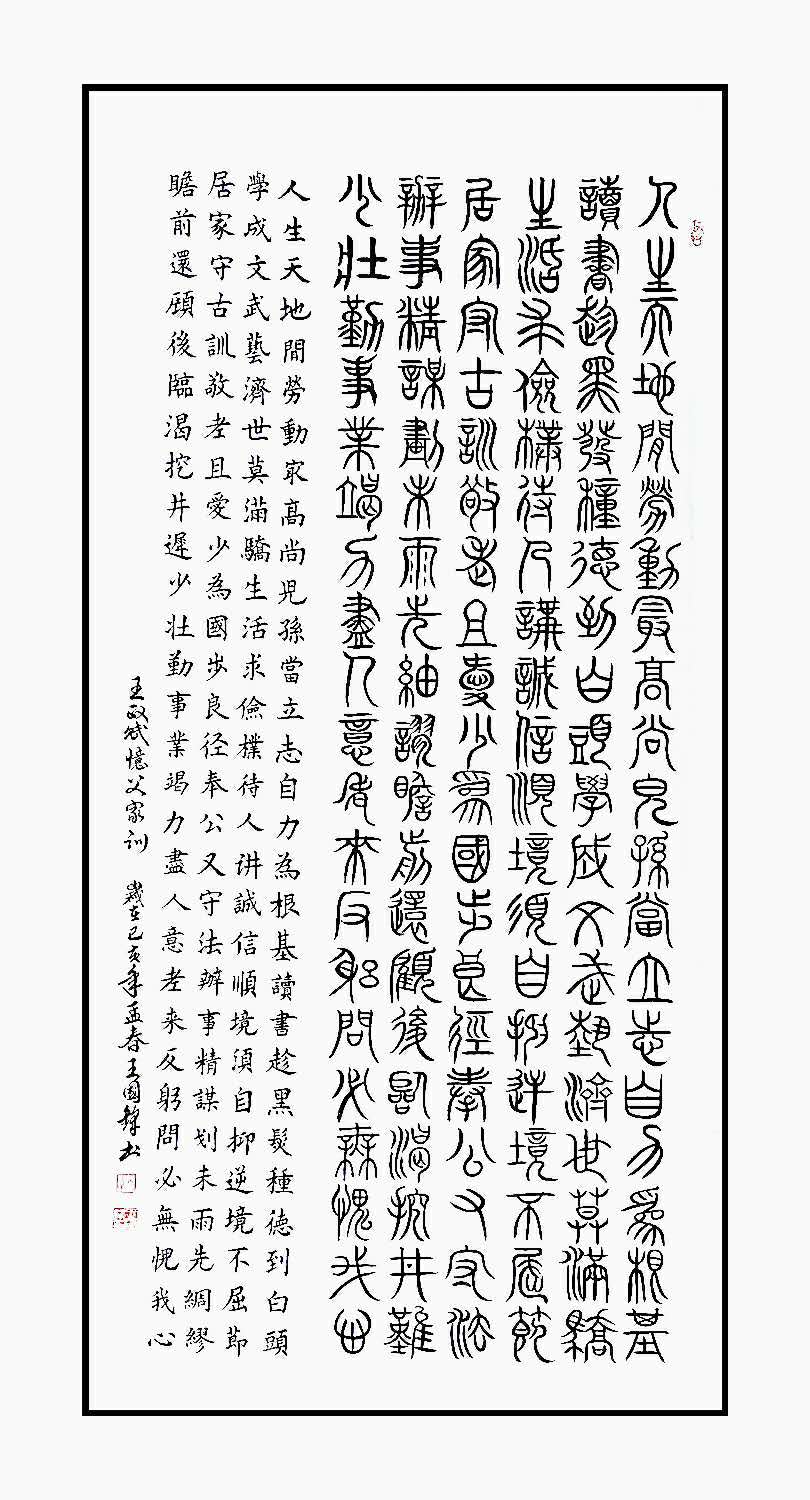 人生天地間勞動最高尚兒孫當立志自力為根基
讀書趁黑發種德到白頭學成文武藝濟世莫滿驕
生活求儉樸待人講誠信順境須自抑逆境不屈節
居家守古訓敬老且愛少為國步良徑奉公又守法
辦事精謀劃未雨先紬謬瞻前還顧後臨渴挖井難
少壯勤事業竭力盡人意老來反躬問必無愧我心
人生天地間勞動冣高尚兒孫當立志自力為根基讀書趁黑髮種德到白頭
學成文武藝濟世莫滿驕生活求儉樸待人讲誠信順境須自抑逆境不屈節
居家守古訓敬老且愛少為國步良径奉公又守法辦事精謀划未雨先綢繆
瞻前還顧後臨渴挖井遲少壯勤事業竭力盡人意老来反躬問必無愧我心
王政斌憶父家训 歲在己亥年孟春王國輝书